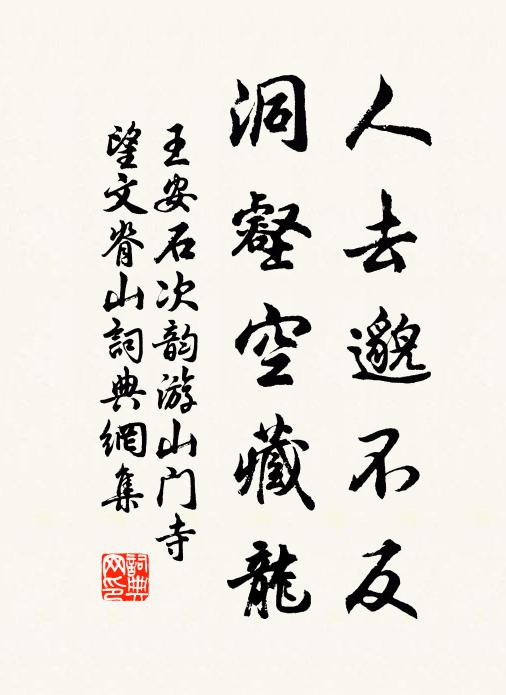 人去邈不反
洞壑空藏龍
王安石次韵游山门寺
望文脊山詞典網集
詞典
网印